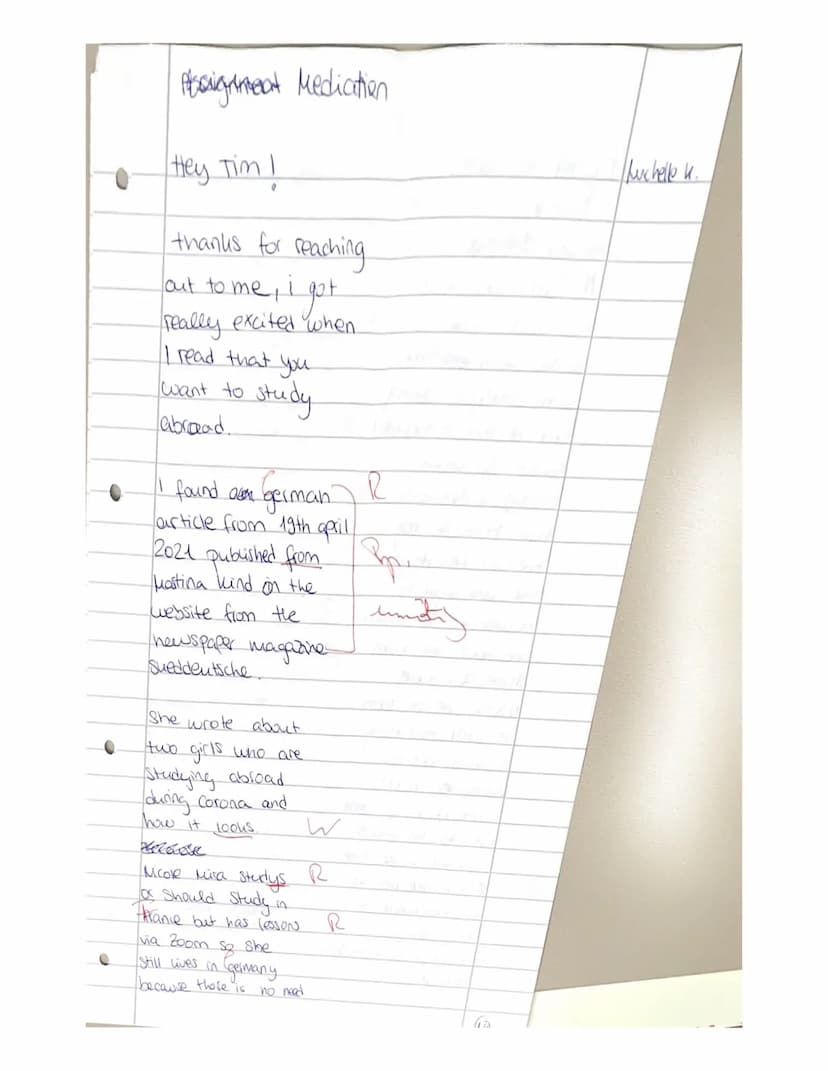 Assignment Mediation
Hey Tim!
Michelle K.
thanks for reaching
out to me, i got
really excited when
I read that you
want to study
abroad.
I found german
R
article from 19th april
2021 published from
Rp.
Martina Kind on the
website from the
newspaper magazine
Sueddeutsche.
She wrote about
two girls who are
studying abroad
during Corona and
how it looks
W
Nicole studys
R
or should study in
france but has lesson
R
via Zoom so she
still lives in Germany
because there is no need